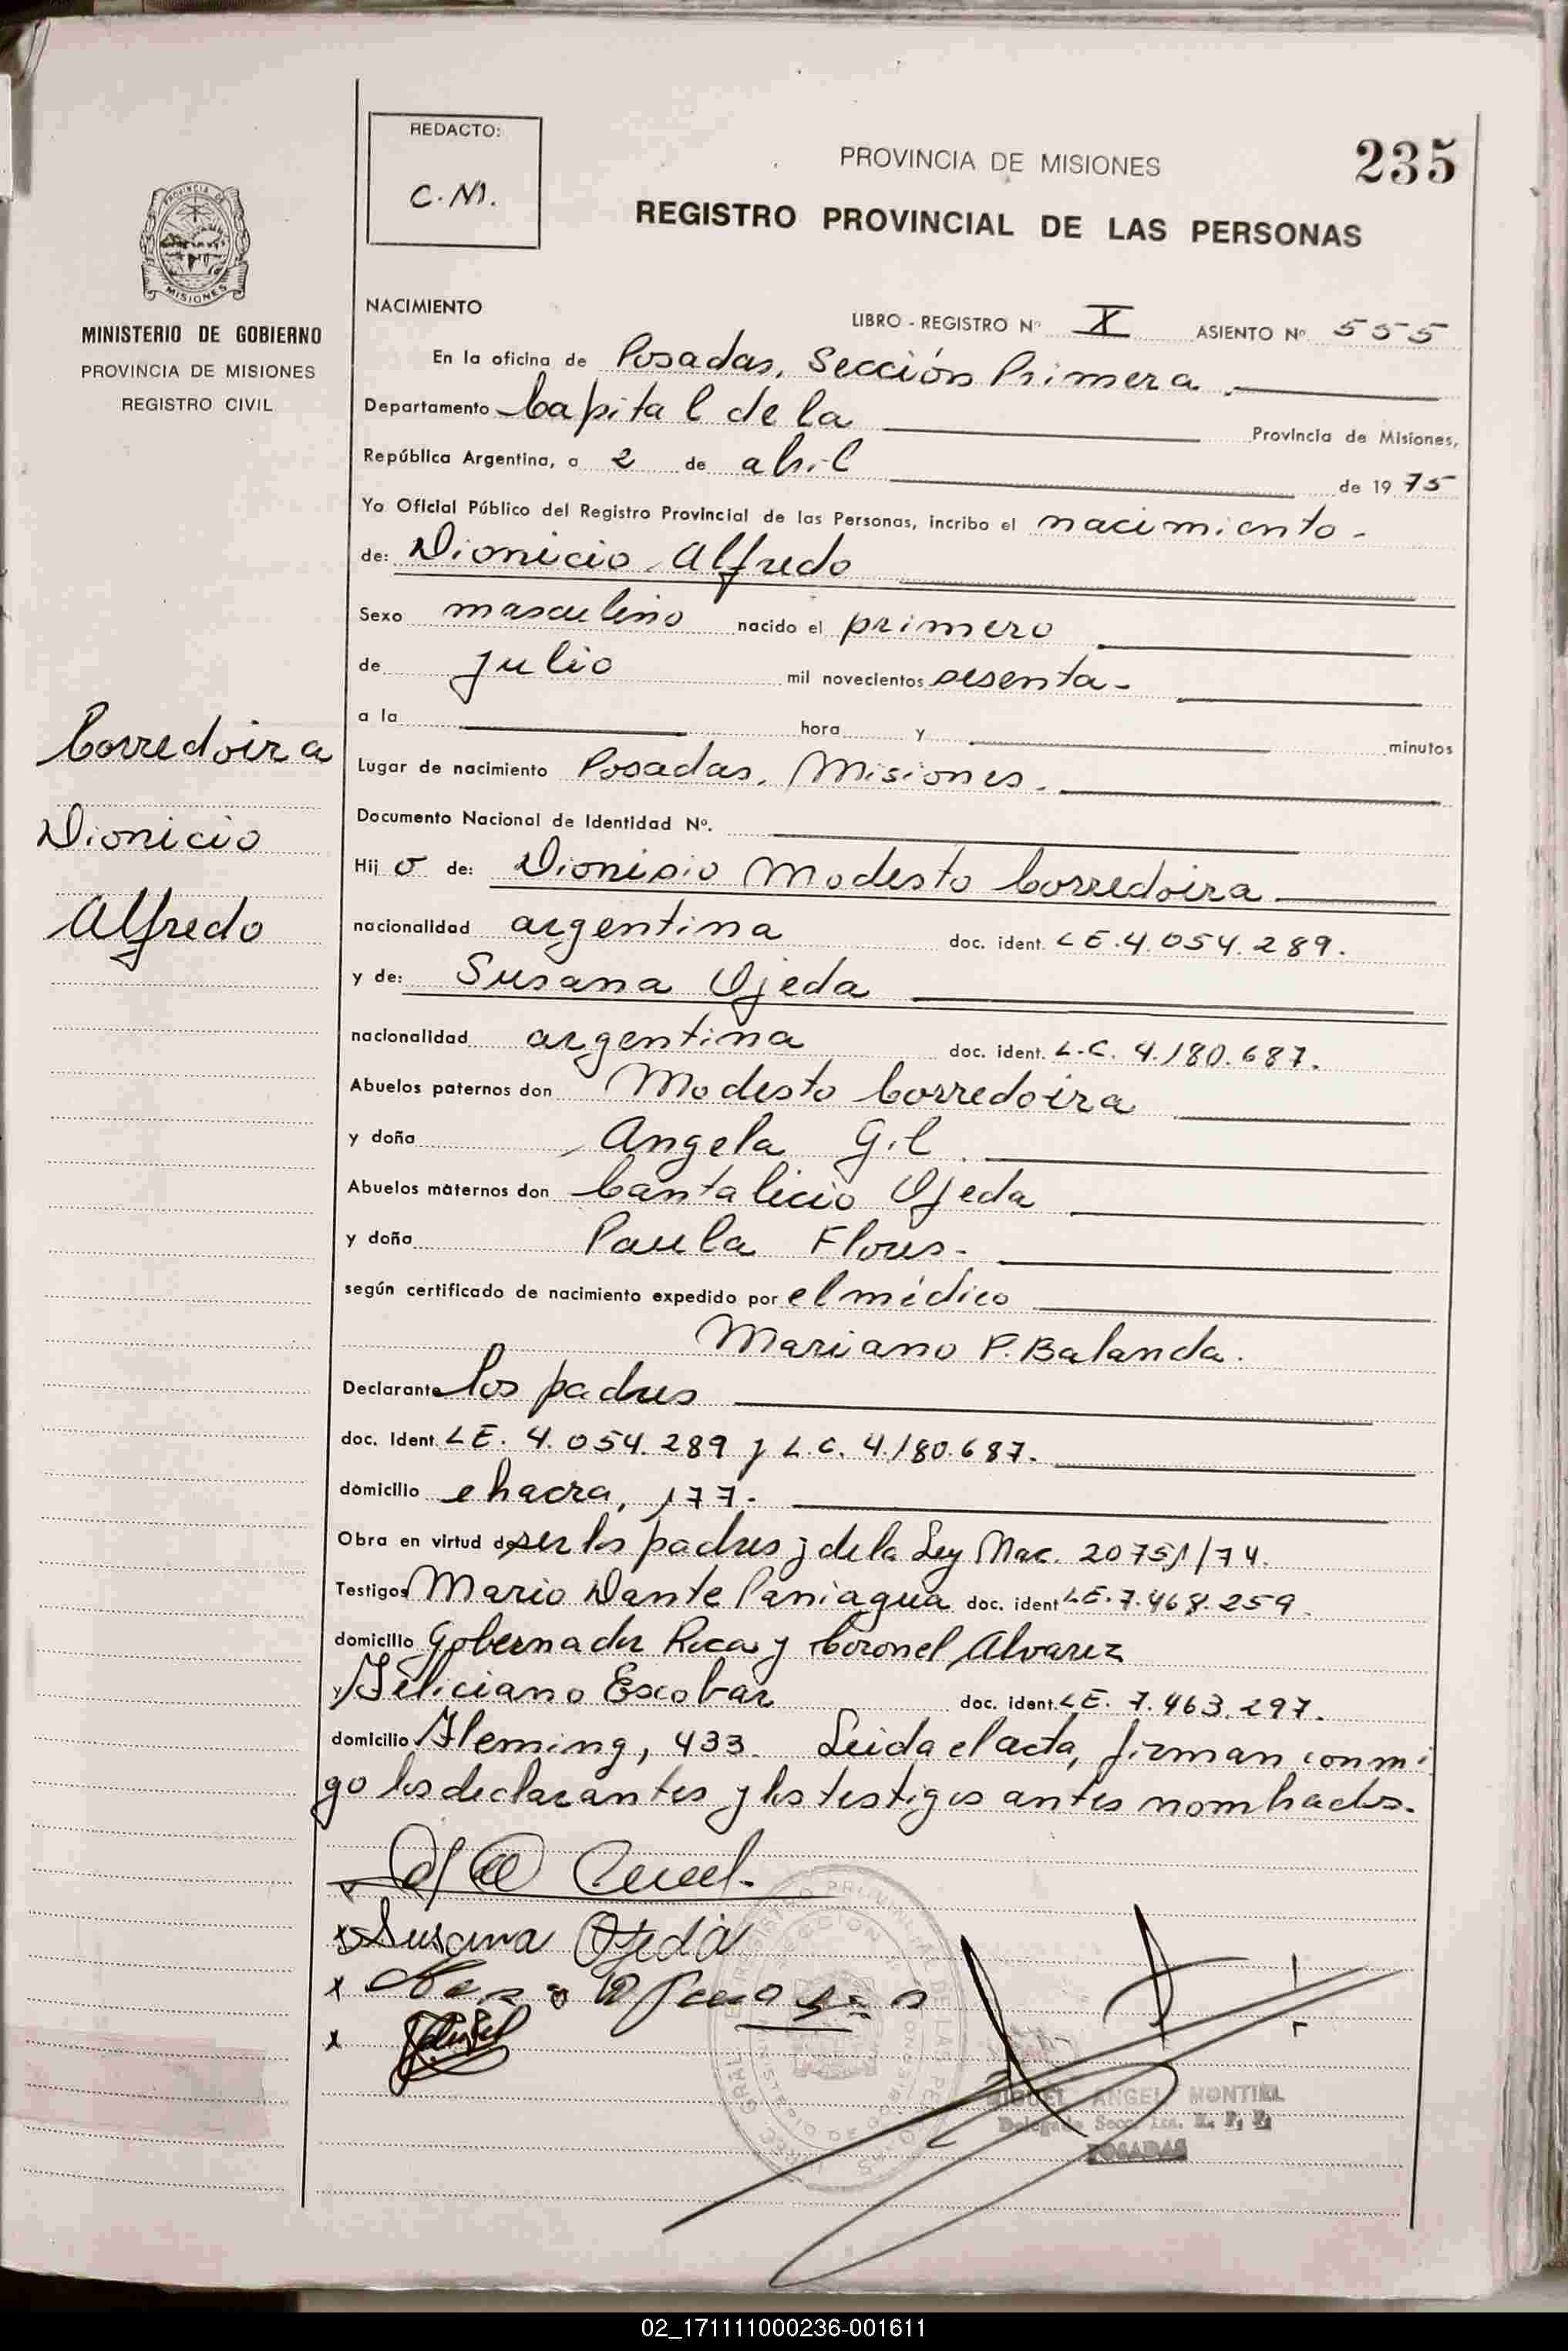 REDACTO:
C.M.
PROVINCIA DE MISIONES
235
REGISTRO PROVINCIAL DE LAS PERSONAS
MISIONES
MINISTERIO DE GOBIERNO
PROVINCIA DE MISIONES
REGISTRO CIVIL
NACIMIENTO
LIBRO - REGISTRO Nº X ASIENTO Nº 555
En la oficina de Posadas, Sección Primera.
Departamento Capital de la Provincia de Misiones,
República Argentina, a 2 de abril de 1975
Yo Oficial Público del Registro Provincial de las Personas, incribo el nacimiento -
de: Dionicio Alfredo
Sexo masculino nacido el primero
de julio mil novecientos sesenta -
a la hora y minutos
Corredoira
Dionicio
Alfredo
Lugar de nacimiento Posadas, Misiones.
Documento Nacional de Identidad Nº.
Hij o de: Dionisio Modesto Corredoira
nacionalidad argentina doc. ident. LE.4.054.289.
y de: Susana Ojeda
nacionalidad argentina doc. ident. L.C. 4.180.687.
Abuelos paternos don Modesto Corredoira
y doña Angela Gil
Abuelos maternos don Cantalicio Ojeda
y doña Paula Flores -
según certificado de nacimiento expedido por el médico
Mariano P. Balanda.
Declarante los padres
doc. Ident. LE. 4.054.289 y L.C. 4.180.687.
domicilio chacra, 177.
Obra en virtud de ser los padres y de la Ley Nac. 20751/74.
Testigos Mario Dante Paniagua doc. ident LE. 7.468.259.
domicilio Gobernador Roca y Coronel Alvarez
y Feliciano Escobar doc. ident. LE. 7.463.297.
domicilio Fleming, 433. Leida el acta, firman conmi
go los declarantes y los testigos antes nombrados.
x Susana Ojeda
x
x
MIGUEL ANGEL MONTIEL
Delegado Secc. 1ra. R. P. P.
POSADAS
02_171111000236-001611